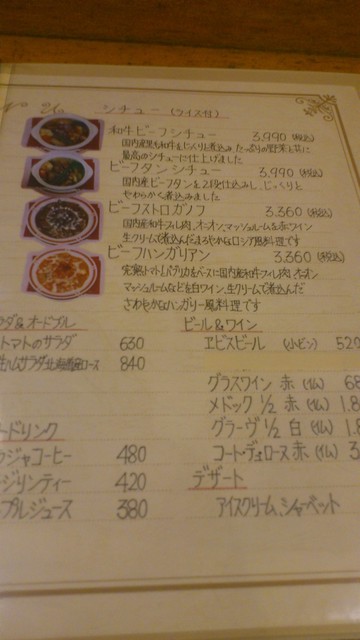 シチュー (ライス付)
和牛ビーフシチュー 3,990 (税込)
国内産黒毛和牛をじっくりと煮込み、たっぷりの野菜と共に
最高のシチューに仕上げました
ビーフタンシチュー 3,990 (税込)
国内産ビーフタンを2段仕込みし、じっくりと
やわらかく煮込みました
ビーフストロガノフ 3,360 (税込)
国内産和牛フィレ肉、オニオン、マッシュルームを赤ワイン
生クリームで煮込んだまろやかなロシア風料理です
ビーフハンガリアン 3,360 (税込)
完熟トマトとパプリカをベースに国内産和牛フィレ肉、オニオン
マッシュルームなどを白ワイン、生クリームで煮込んだ
さわやかなハンガリー風料理です
ラダ&オードブル
トマトのサラダ 630
生ハムサラダ 840
ビール&ワイン
ヱビスビール (小ビン) 520
グラスワイン 赤 (仏) 68
メドック 1/2 赤 (仏) 1.8
グラーヴ 1/2 白 (仏) 1.8
コート・デュ・ローヌ 赤 (仏) 3.
トドリンク
ジャコーヒー 480
ジリンティー 420
プルジュース 380
デザート
アイスクリーム、シャーベット